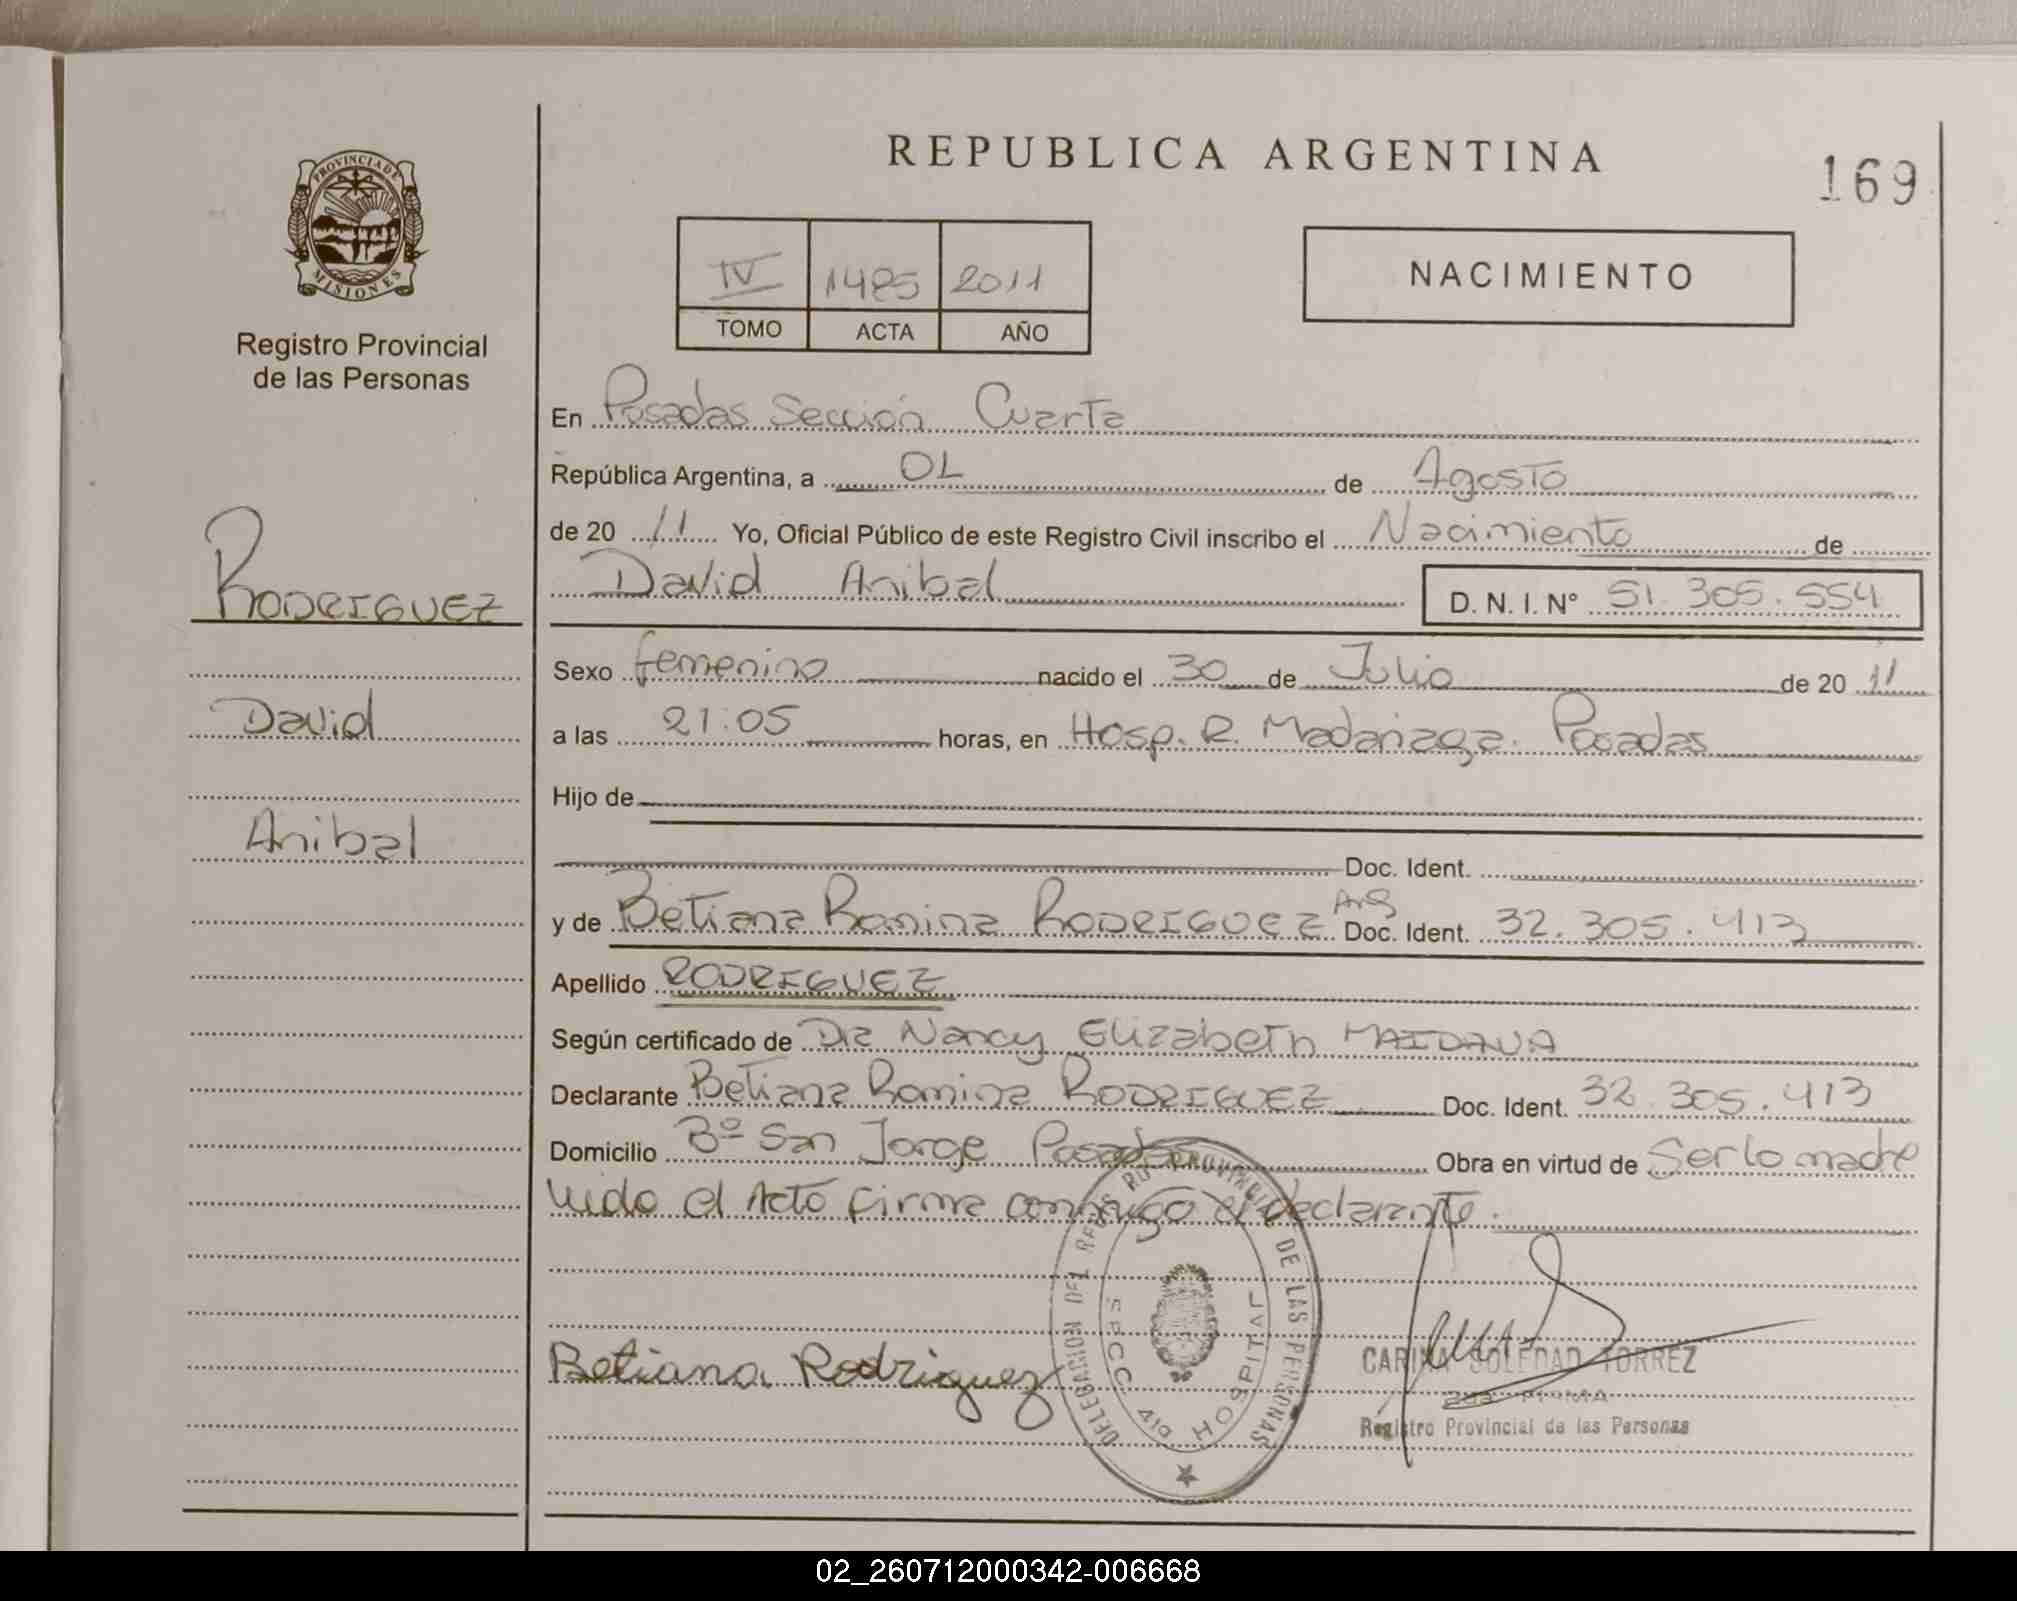 REPUBLICA ARGENTINA
169
PROVINCIA DE MISIONES
Registro Provincial
de las Personas
IV 1485 2011
TOMO ACTA AÑO
NACIMIENTO
En Posadas Sección Cuarta
República Argentina, a 01 de Agosto
de 20 11 Yo, Oficial Público de este Registro Civil inscribo el Nacimiento de
David Anibal D. N. I. N° 51.305.554
RODRIGUEZ
David
Anibal
Sexo femenino nacido el 30 de Julio de 20 11
a las 21:05 horas, en Hosp. R. Madariaga. Posadas
Hijo de
Doc. Ident.
y de Betiana Romina RODRIGUEZ Arg Doc. Ident. 32.305.413
Apellido RODRIGUEZ
Según certificado de Dra Nancy Elizabeth MAIDANA
Declarante Betiana Romina RODRIGUEZ Doc. Ident. 32.305.413
Domicilio Bº San Jorge Posadas Obra en virtud de Ser lo madre
Leido el Acto firma conmigo el declarante.
Betiana Rodriguez
DELEGACION DEL REG. PROVINCIAL DE LAS PERSONAS
HOSPITAL
CARINA SOLEDAD TORREZ
2da FIRMA
Registro Provincial de las Personas
02_260712000342-006668